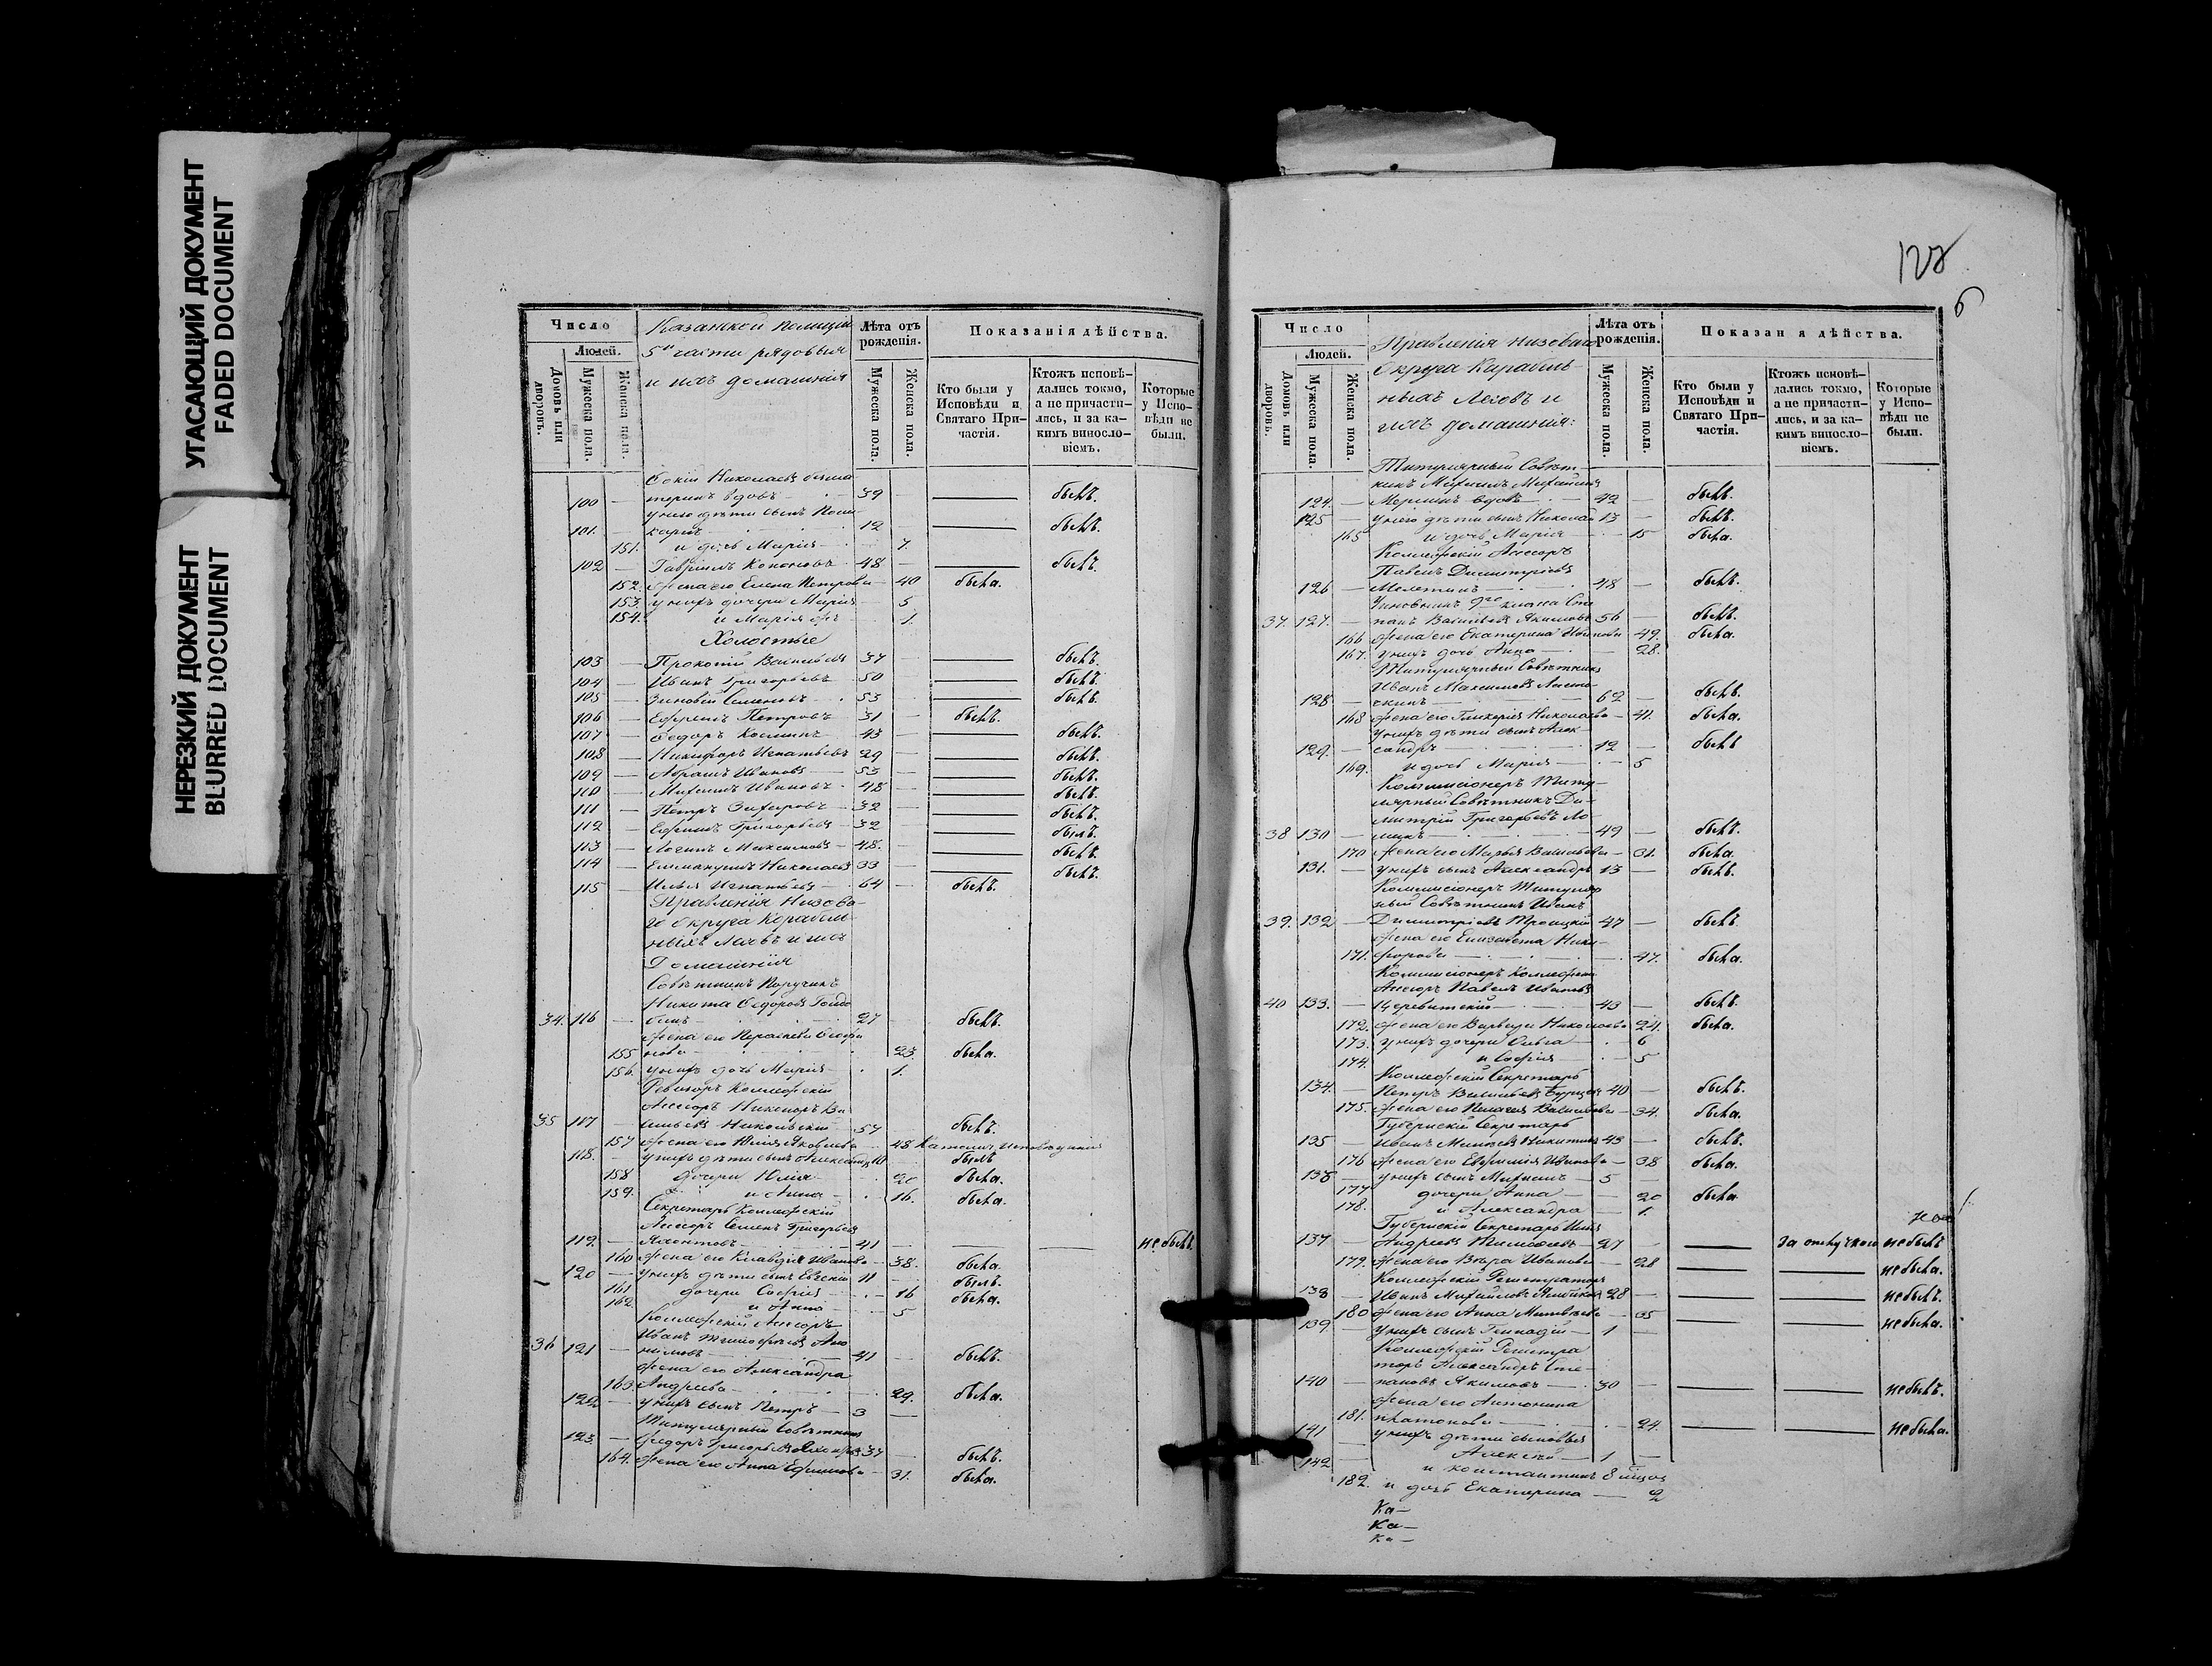 УГАСАЮЩИЙ ДОКУМЕНТ
FADED DOCUMENT
НЕРЕЗКИЙ ДОКУМЕНТ
BLURRED DOCUMENT
Число
Людей.
Домовъ или дворовъ.
Мужеска пола.
Женска пола.
Казанской полиции
5й части рядовыя
и ихъ домашнія
Лѣта отъ рожденія.
Мужеска пола.
Женска пола.
Показанія дѣйства.
Кто были у Исповѣди и Святаго Причастія.
Ктожъ исповѣдались токмо, а не причастились, и за какимъ винословіемъ.
Которые у Исповѣди не были.
Николаевъ
100 — вдовъ — 39 — былъ.
у него дѣти сынъ
101. — 12 — былъ.
151. и дочь Марія — 7.
102 — Гавріилъ Кононовъ — 48 — былъ.
152. жена его Елена Петрова — 40 была.
153. у нихъ дочери Марія — 5
154. и Марія же — 1.
Холостые
103 — Прокопій Васильевъ 37 — былъ.
104 — Иванъ Григорьевъ 50 — былъ.
105 — Зиновій Семеновъ 53 — былъ.
106 — Ефремъ Петровъ 31 — былъ.
107 — Ѳедоръ Косминъ 43 — былъ.
108 — Никифоръ Игнатьевъ 29 — былъ.
109 — Абрамъ Ивановъ — 53 — былъ.
110 — Михаилъ Ивановъ 48 — былъ.
111 — Петръ Захаровъ — 32 — былъ.
112 — Ефимъ Григорьевъ — 32 — былъ.
113 — Логинъ Максимовъ — 48. — былъ.
114 — Николаевъ 33 — былъ.
115 — Илья Игнатьевъ — 64 — былъ.
Правленія Низова-
го округа Корабель
ныхъ лѣсовъ и ихъ
Домашнія
Совѣтникъ Поручикъ
Никита Ѳедоровъ
34. 116 — 27 былъ.
жена его
155 — 23. была.
156. у нихъ дочь Марія — 1.
Ревизоръ Коллежскій
Ассесоръ Никаноръ Ва
35 117 — сильевъ Никольскій — 57 былъ.
157 жена его Юлія Яковлева 48
118. — у нихъ дѣти сынъ Александръ 10 былъ
158 дочери Юлія — 20 была.
159. и Анна — 16. была.
Секретарь Коллежскій
Ассесоръ Семенъ Григорьевъ
119. — 41 — не былъ.
160 жена его Клавдія Иванова — 38. была.
120 — у нихъ дѣти сынъ Евгеній 11 — былъ.
161 дочери Софія — 16 была.
162. и Анна — 5
Коллежскій Ассесоръ
Иванъ Тимофеевъ
36 121 — 41 — былъ.
жена его Александра
163. Андреева — 29. была.
122 — у нихъ сынъ Петръ — 3 —
Титулярный Совѣтникъ
123 — Федоръ Григорьевъ 37 — былъ.
164. жена его Анна Ефимова — 31. была.
128
6
Число
Людей.
Домовъ или дворовъ.
Мужеска пола.
Женска пола.
Правленія низоваго
Округа Карабель
ныхъ Лесовъ и
ихъ домашнія:
Лѣта отъ рожденія.
Мужеска пола.
Женска пола.
Показан я дѣйства.
Кто были у Исповѣди и Святаго Причастія.
Ктожъ исповѣдались токмо, а не причастились, и за какимъ винословіемъ.
Которые у Исповѣди не были.
Титулярный Совѣт-
никъ Михаилъ Михайловъ
124. — вдовъ — 42 — былъ.
125 — у него дѣти сынъ Николай 13 — былъ.
165 и дочь Марія — 15 была.
Коллежскій Ассесоръ
Павелъ Димитріевъ
126 — 48 — былъ.
Чиновникъ 9го класса Сте
37. 127. — панъ Васильевъ Якимовъ 56 — былъ.
166 жена его Екатерина Иванова 49. была.
167. у нихъ дочь Анна — 28.
Титулярный Совѣтникъ
Иванъ Максимовъ
128 — 62 — былъ.
168 жена его Гликерія Николаева — 41. была.
у нихъ дѣти сынъ Алек-
129. — сандръ 12 — былъ
169. и дочь Марія — 5
Коммисіонеръ Титу-
лярный Совѣтникъ Ди-
митрій Григорьевъ
38 130 — 49 — былъ.
170 жена его Марья Васильева — 31. была
131. — у нихъ сынъ Александръ 13 — былъ.
Коммисіонеръ Титуляр
ный Совѣтникъ Иванъ
39. 132 — Димитріевъ Троицкій 47 — былъ.
жена его Елизавета Ники-
171. форова — 47. была.
Коммисіонеръ Коллежскій
Ассесоръ Павелъ Ивановъ
40 133. — 43 — былъ.
172. жена его Варвара Николаева 24. была.
173. у нихъ дочери Ольга — 6
174. и Софія — 5
Коллежскій Секретарь
134. — Петръ Васильевъ 40 — былъ.
175. жена его Пелагея Васильева — 34. была.
Губернскій Секретарь
135 — Иванъ Никитинъ 43 — былъ.
176 жена его Евфимія Иванова — 38 была.
136 — у нихъ сынъ Михаилъ — 5 —
177 дочери Анна — 20 была
178. и Александра — 1.
Губернскій Секретарь
137 — Андреевъ Тимофеевъ — 27 — не былъ
179. жена его Вѣра Иванова 28 — не была.
Коллежскій Регистраторъ
138 — Иванъ Михайловъ 28 — не былъ.
180 жена его Анна Матвѣева — 35 — не была.
139. — у нихъ сынъ Геннадій — 1 —
Коллежскій Регистра
торъ Александръ Сте-
140 — пановъ Якимовъ — 30 — не былъ.
жена его Антонина
181. Платонова — 24. — не была.
141 — у нихъ дѣти сыновья
Алексѣй — 1 —
142 — и Константинъ 8 мѣсяц
182. и дочь Екатерина — 2
Ка—
Ка—
Ка—